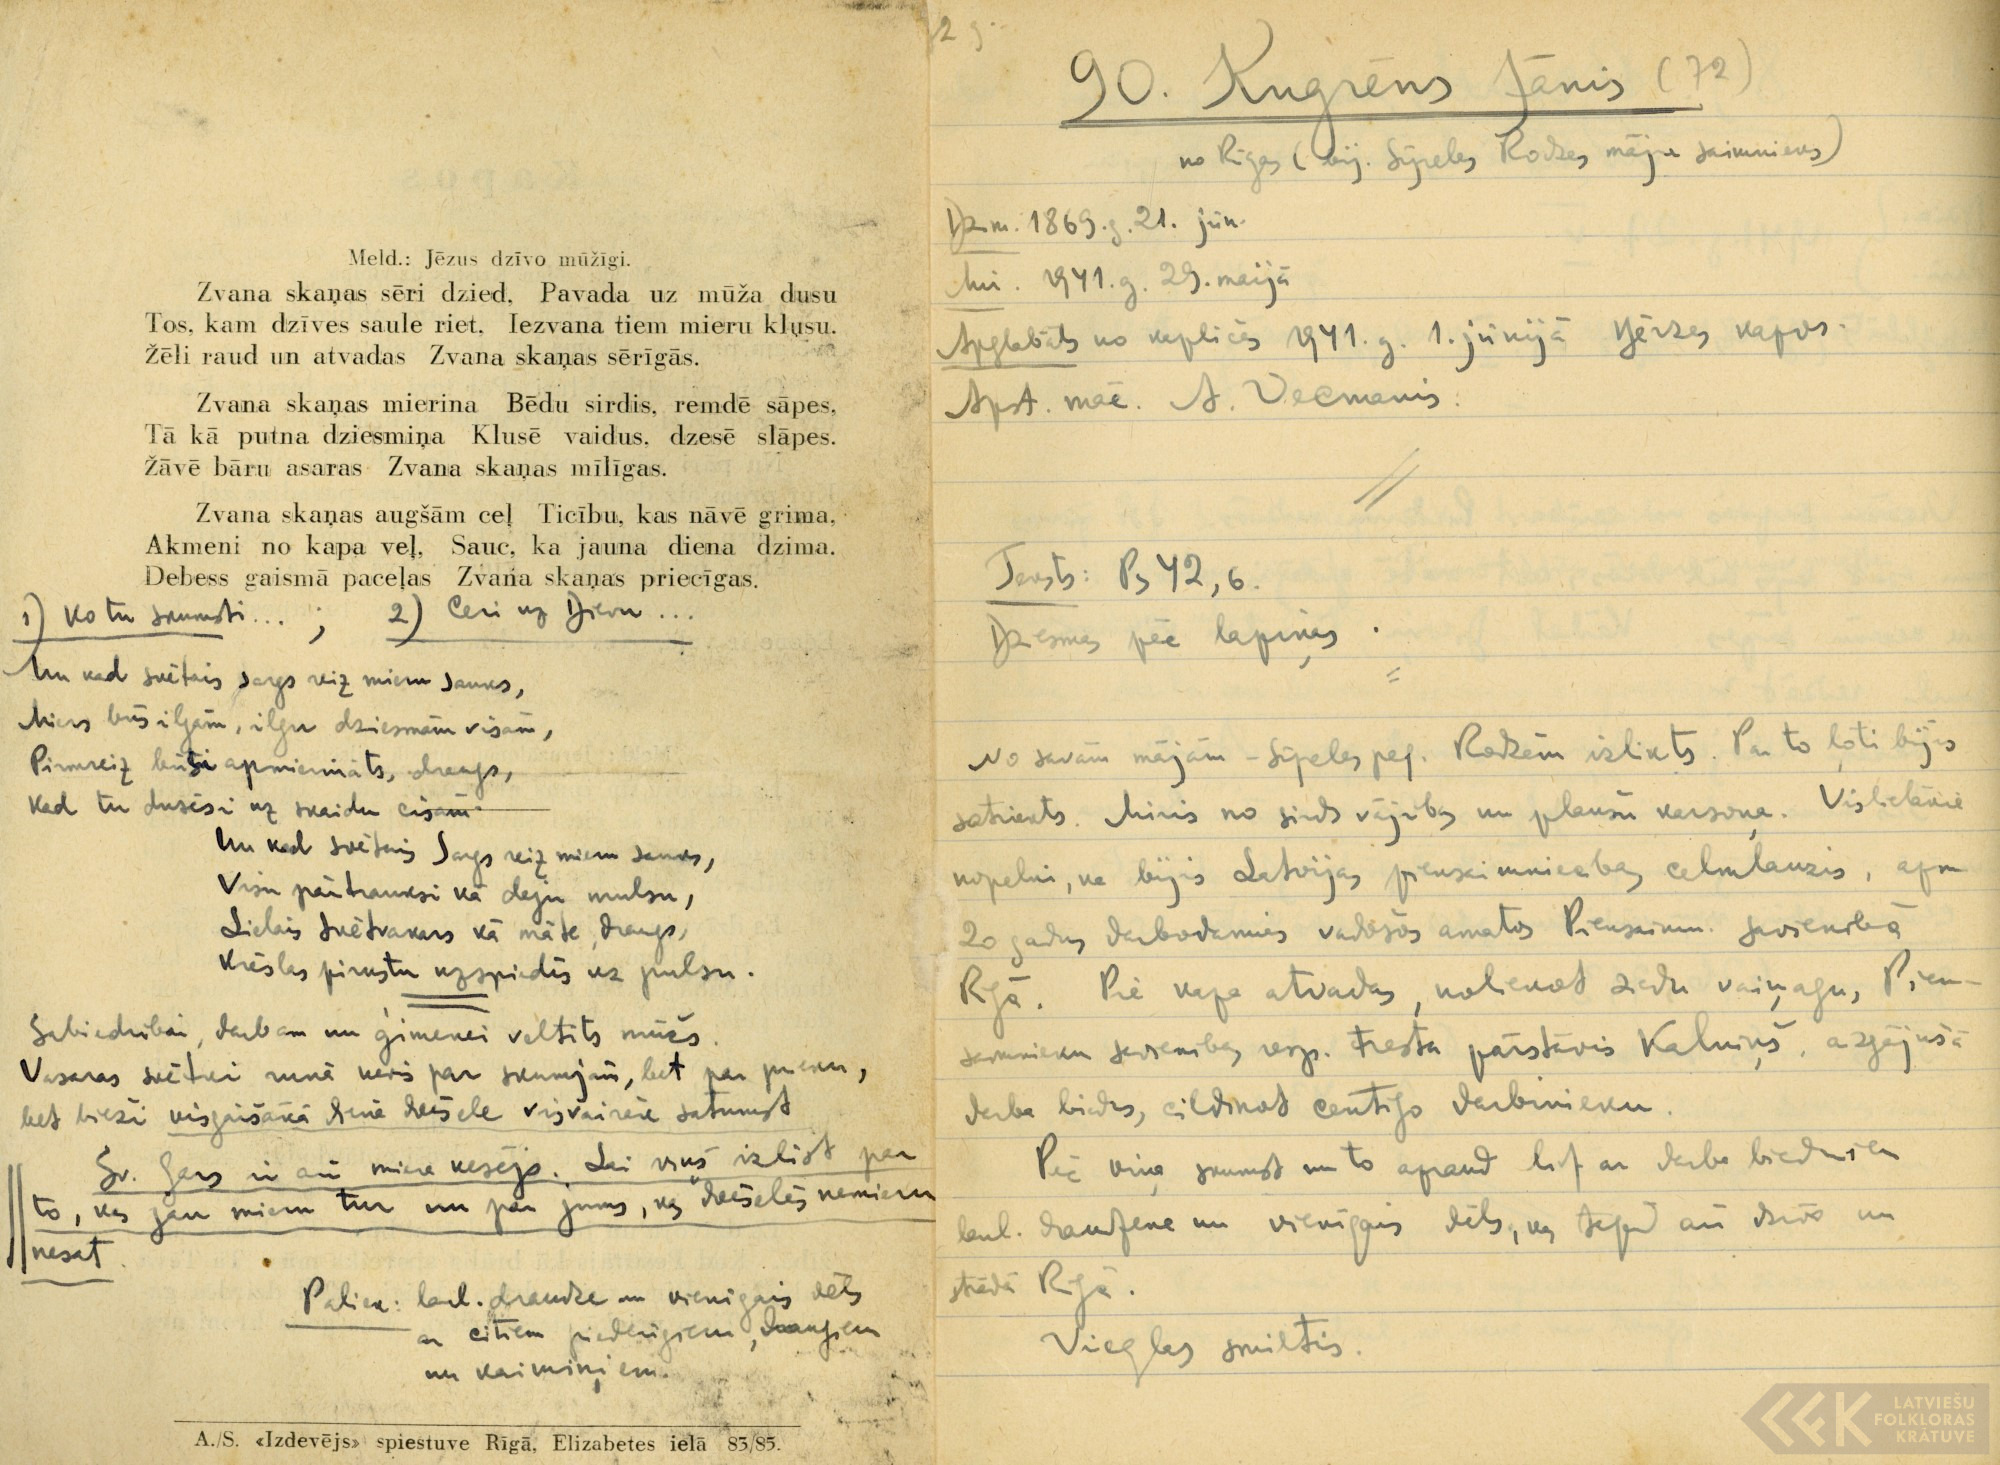 Meld.: Jēzus dzīvo mūžīgi.
Zvana skaņas sēri dzied, Pavada uz mūža dusu
Tos, kam dzīves saule riet, Iezvana tiem mieru klusu.
Žēli raud un atvadas Zvana skaņas sērīgās.
Zvana skaņas mierina Bēdu sirdis, remdē sāpes,
Tā kā putna dziesmiņa Klusē vaidus, dzesē slāpes.
Žāvē bāru asaras Zvana skaņas mīlīgas.
Zvana skaņas augšām ceļ Ticību, kas nāvē grima,
Akmeni no kapa veļ, Sauc, ka jauna diena dzima.
Debess gaismā paceļas Zvana skaņas priecīgas.
1) Ko tu skumsti... ; 2) Ceri uz Dievu ...
Un kad svētais sargs reiz mieru sauks,
Miers būs ilgām, ilgu dziesmām visām,
Pirmreiz būsi apmierināts, draugs,
Kad tu dusēsi uz skaidu cisām.
Un kad svētais Sargs reiz mieru sauks,
Visu pārtrauksi kā deju mulsu,
Lielais svētvakars kā māte, draugs,
Krēslas pirkstu uzspiedīs uz pulsu.
Sabiedrībai, darbam un ģimenei veltīts mūžs.
Vasaras svētki runā nevis par skumjām, bet par prieku,
bet bieži visgaišākā dienā dvēsele visvairāk satumst
Sv. Gars ir arī miera nesējs. Lai viņš izlīst par
to, kas jau mieru tur un par jums, kas dvēselēs nemieru
nesat.
Paliek: laul. draudze un vienīgais dēls
ar citiem piederīgiem, draugiem
un kaimiņiem.
A./S. «Izdevējs» spiestuve Rīgā, Elizabetes ielā 83/85.
2 g.
90. Kugrēns Jānis (72)
no Rīgas (bij. Sīpeles Rodzes māju saimnieks)
Dzim. 1869. g. 21. jūn.
Mi. 1941. g. 29. maijā
Apglabāts no kapličas 1941. g. 1. jūnijā Bērzes kapos.
Apst. māc. A. Vecmanis.
Teksts: Ps 42, 6.
Dziesmas pēc lapiņas.
No savām mājām - Sīpeles pag. Rodzēm izlikts. Par to ļoti bijis
satriekts. Miris no sirds vājības un plaušu karsoņa. Vislielākie
nopelni, ka bijis Latvijas piensaimniecības celmlauzis, apm
20 gadus darbodamies vadošos amatos Piensaimn. savienībā
Rīgā. Pie kapa atvadas, noliekot ziedu vaiņagu, Pien-
saimnieku savienības resp. Tresta pārstāvis Kalniņš, aizgājušā
darba biedrs, cildinot centīgo darbinieku.
Pēc viņa skumst un to apraud līdz ar darba biedriem
laul. draudzene un vienīgais dēls, kas tagad arī dzīvo un
strādā Rīgā.
Vieglas smiltis.
LATVIEŠU
FOLKLORAS
KRĀTUVE